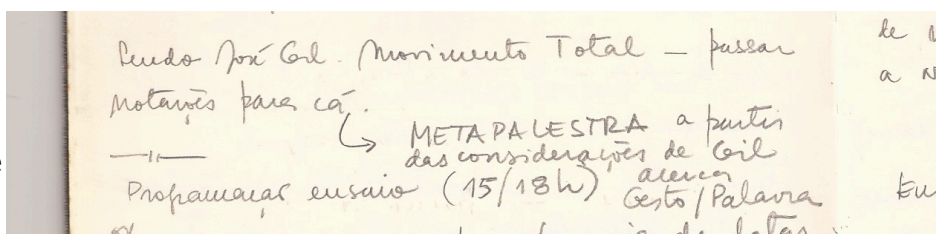 Lendo José Gil. Movimento Total – passar
notações para cá.
METAPALESTRA a partir
das considerações de Gil
acerca
Programação ensaio (15/18h) Gesto/Palavra
de
a